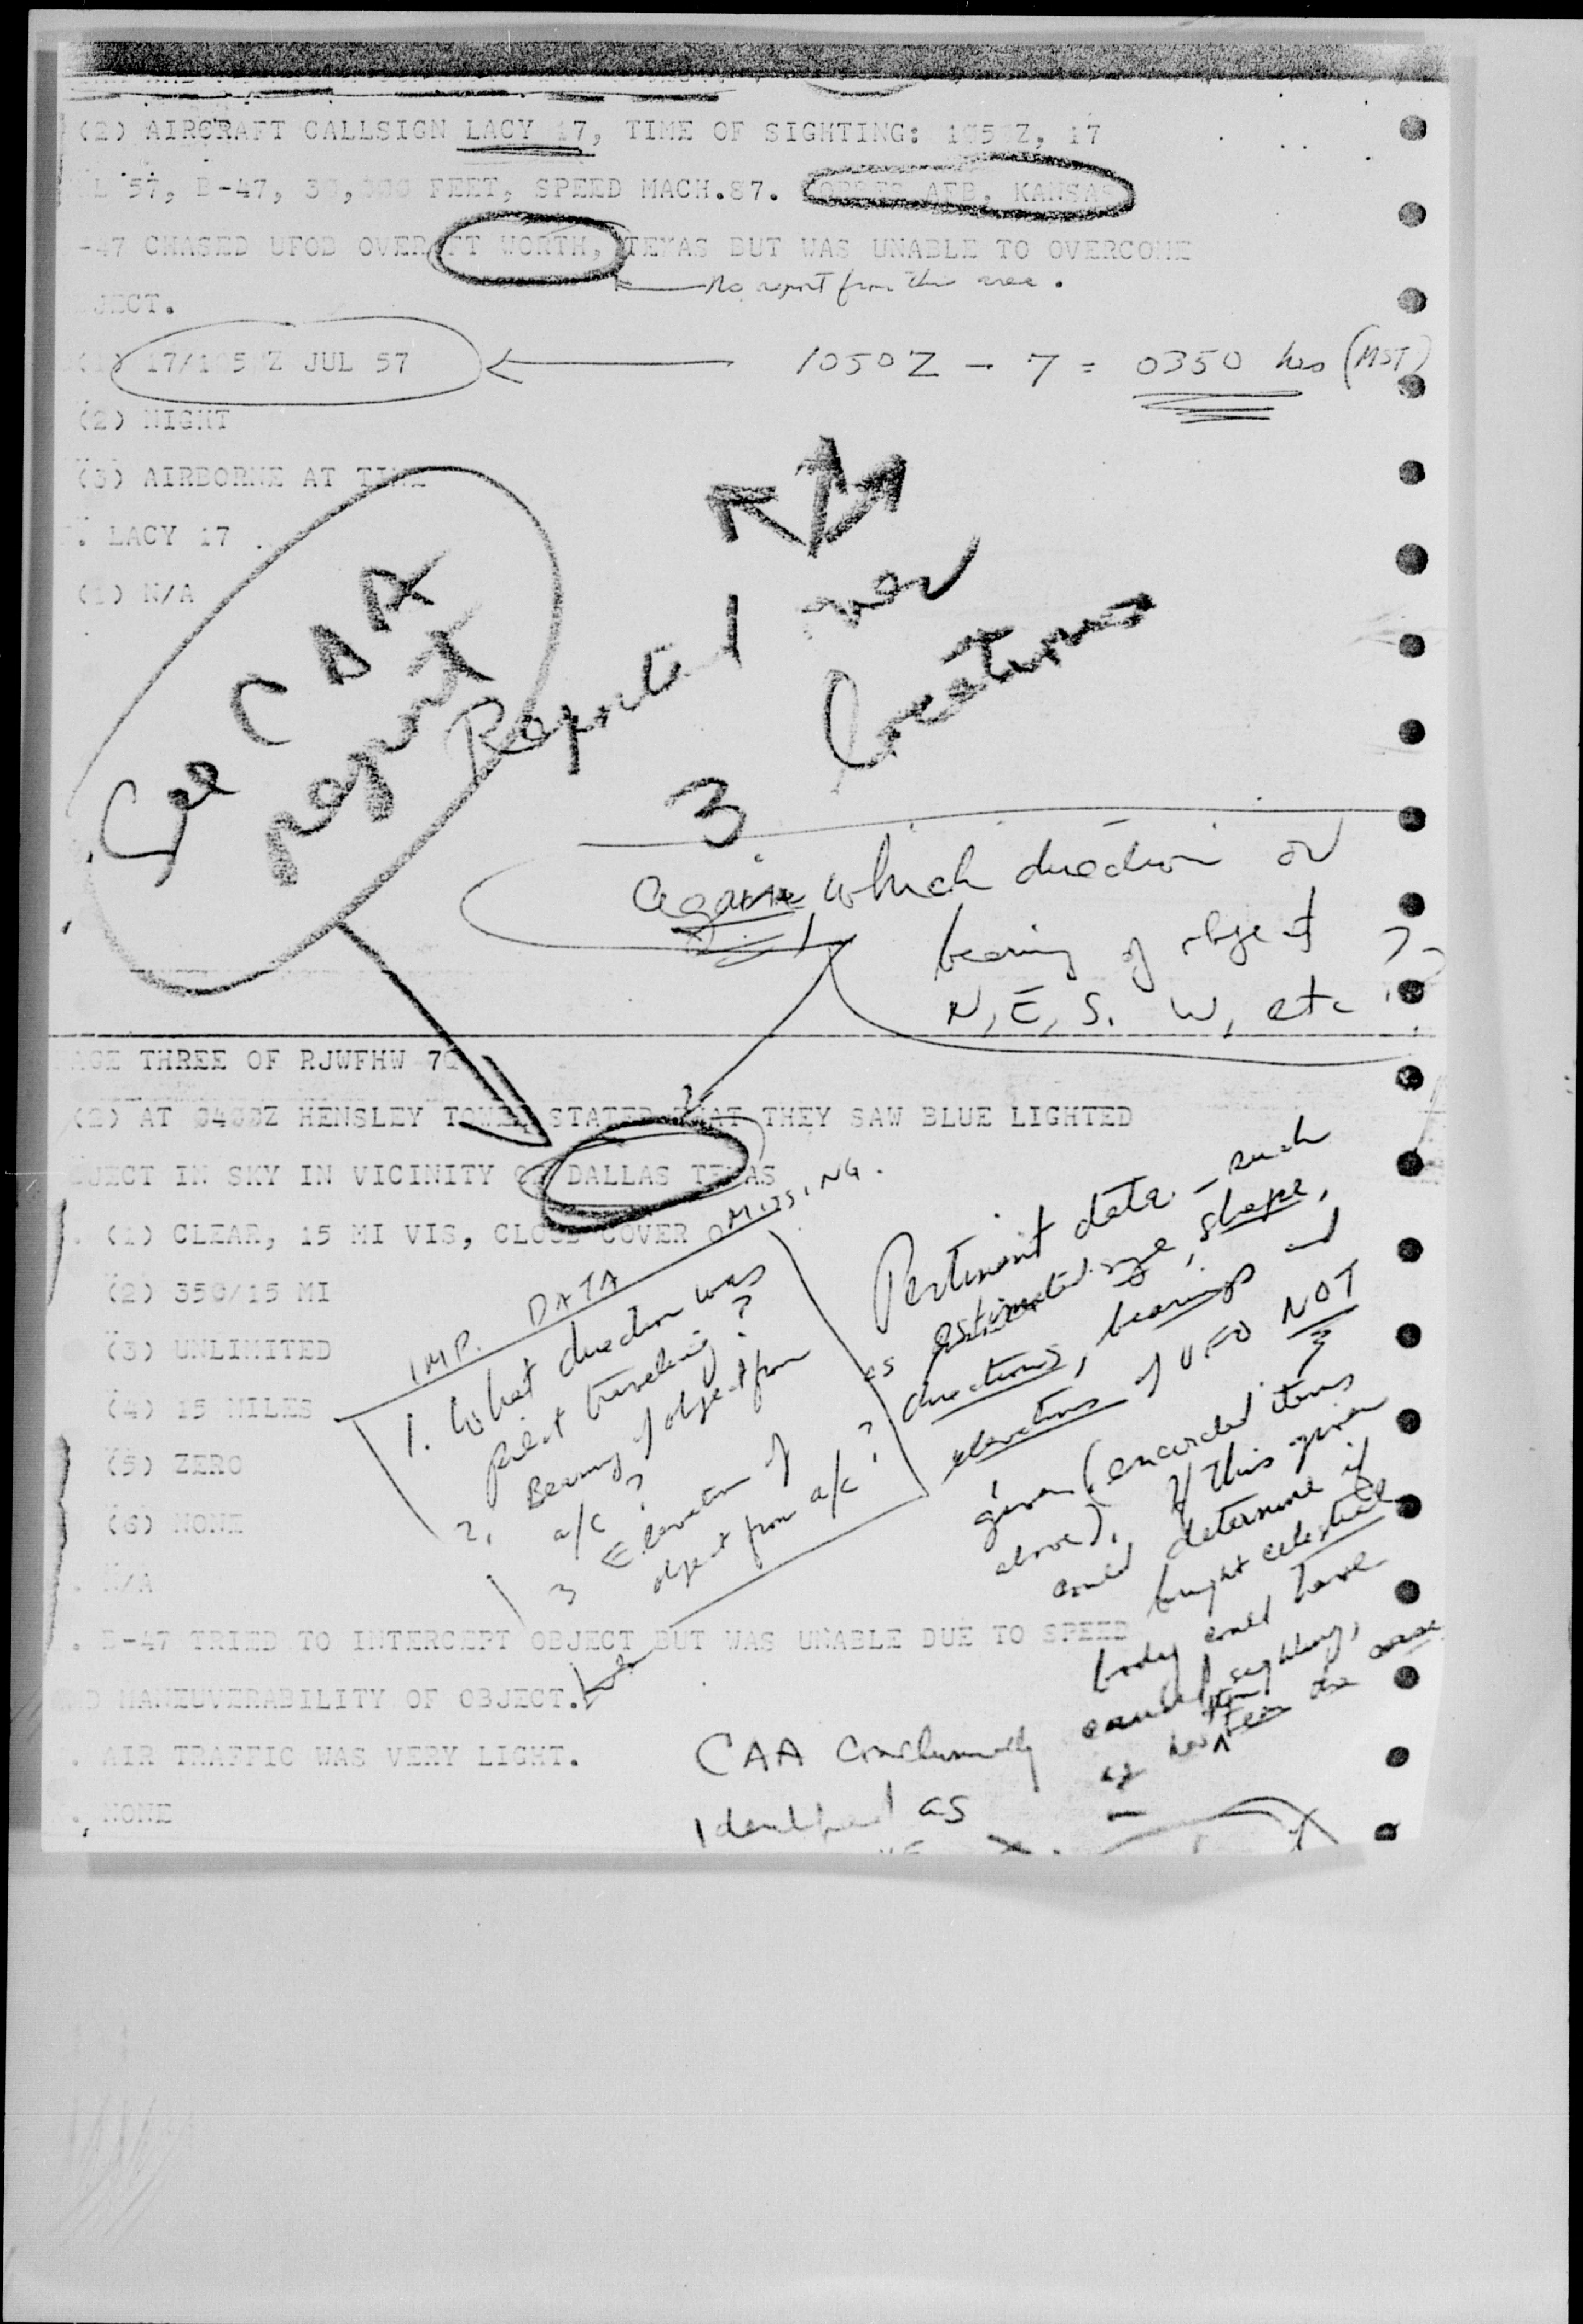 (2) AIRCRAFT CALLSIGN LACY 17, TIME OF SIGHTING: 1050Z, 17
L 57, B-47, FEET, SPEED MACH.87. AFB, KANSAS
-47 CHASED UFOB OVER FT WORTH, TEXAS BUT WAS UNABLE TO OVERCOME
No report from this area.
JECT.
(1) 17/1050Z JUL 57
1050Z - 7 = 0350 hrs (MST)
(2) NIGHT
(3) AIRBORNE AT TIME
. LACY 17
(1) N/A
See CAA
report
Reported over
3 locations
Again, which direction or
bearing of object ??
N, E, S. W, etc
AGE THREE OF RJWFHW 7
(2) AT HENSLEY TOWER STATED THAT THEY SAW BLUE LIGHTED
JECT IN SKY IN VICINITY OF DALLAS TEXAS
. (1) CLEAR, 15 MI VIS, CLOUD COVER
(2) 350/15 MI
(3) UNLIMITED
(4) 15 MILES
(5) ZERO
(6) NONE
. N/A
IMP. DATA MISSING.
1. What direction was
pilot traveling?
2. Bearing of object from
a/c?
3 Elevation of
object from a/c?
Pertinent data - such
as estimated size, shape,
directions, bearings and
elevations of UFO NOT
given (encircled items
above). If this given
could determine if
bright celestial
body could have
caused sighting,
. B-47 TRIED TO INTERCEPT OBJECT BUT WAS UNABLE DUE TO SPEED
D MANEUVERABILITY OF OBJECT.
. AIR TRAFFIC WAS VERY LIGHT.
. NONE
CAA conclusively
identified as